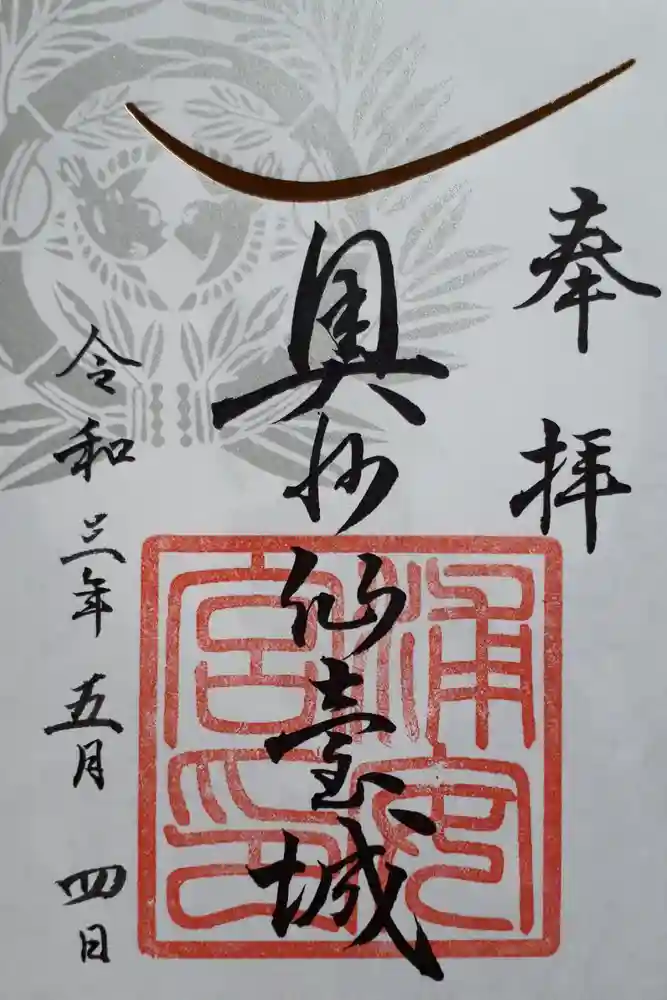 奉拝
奥州仙臺城
浦安
宮印
令和三年五月四日